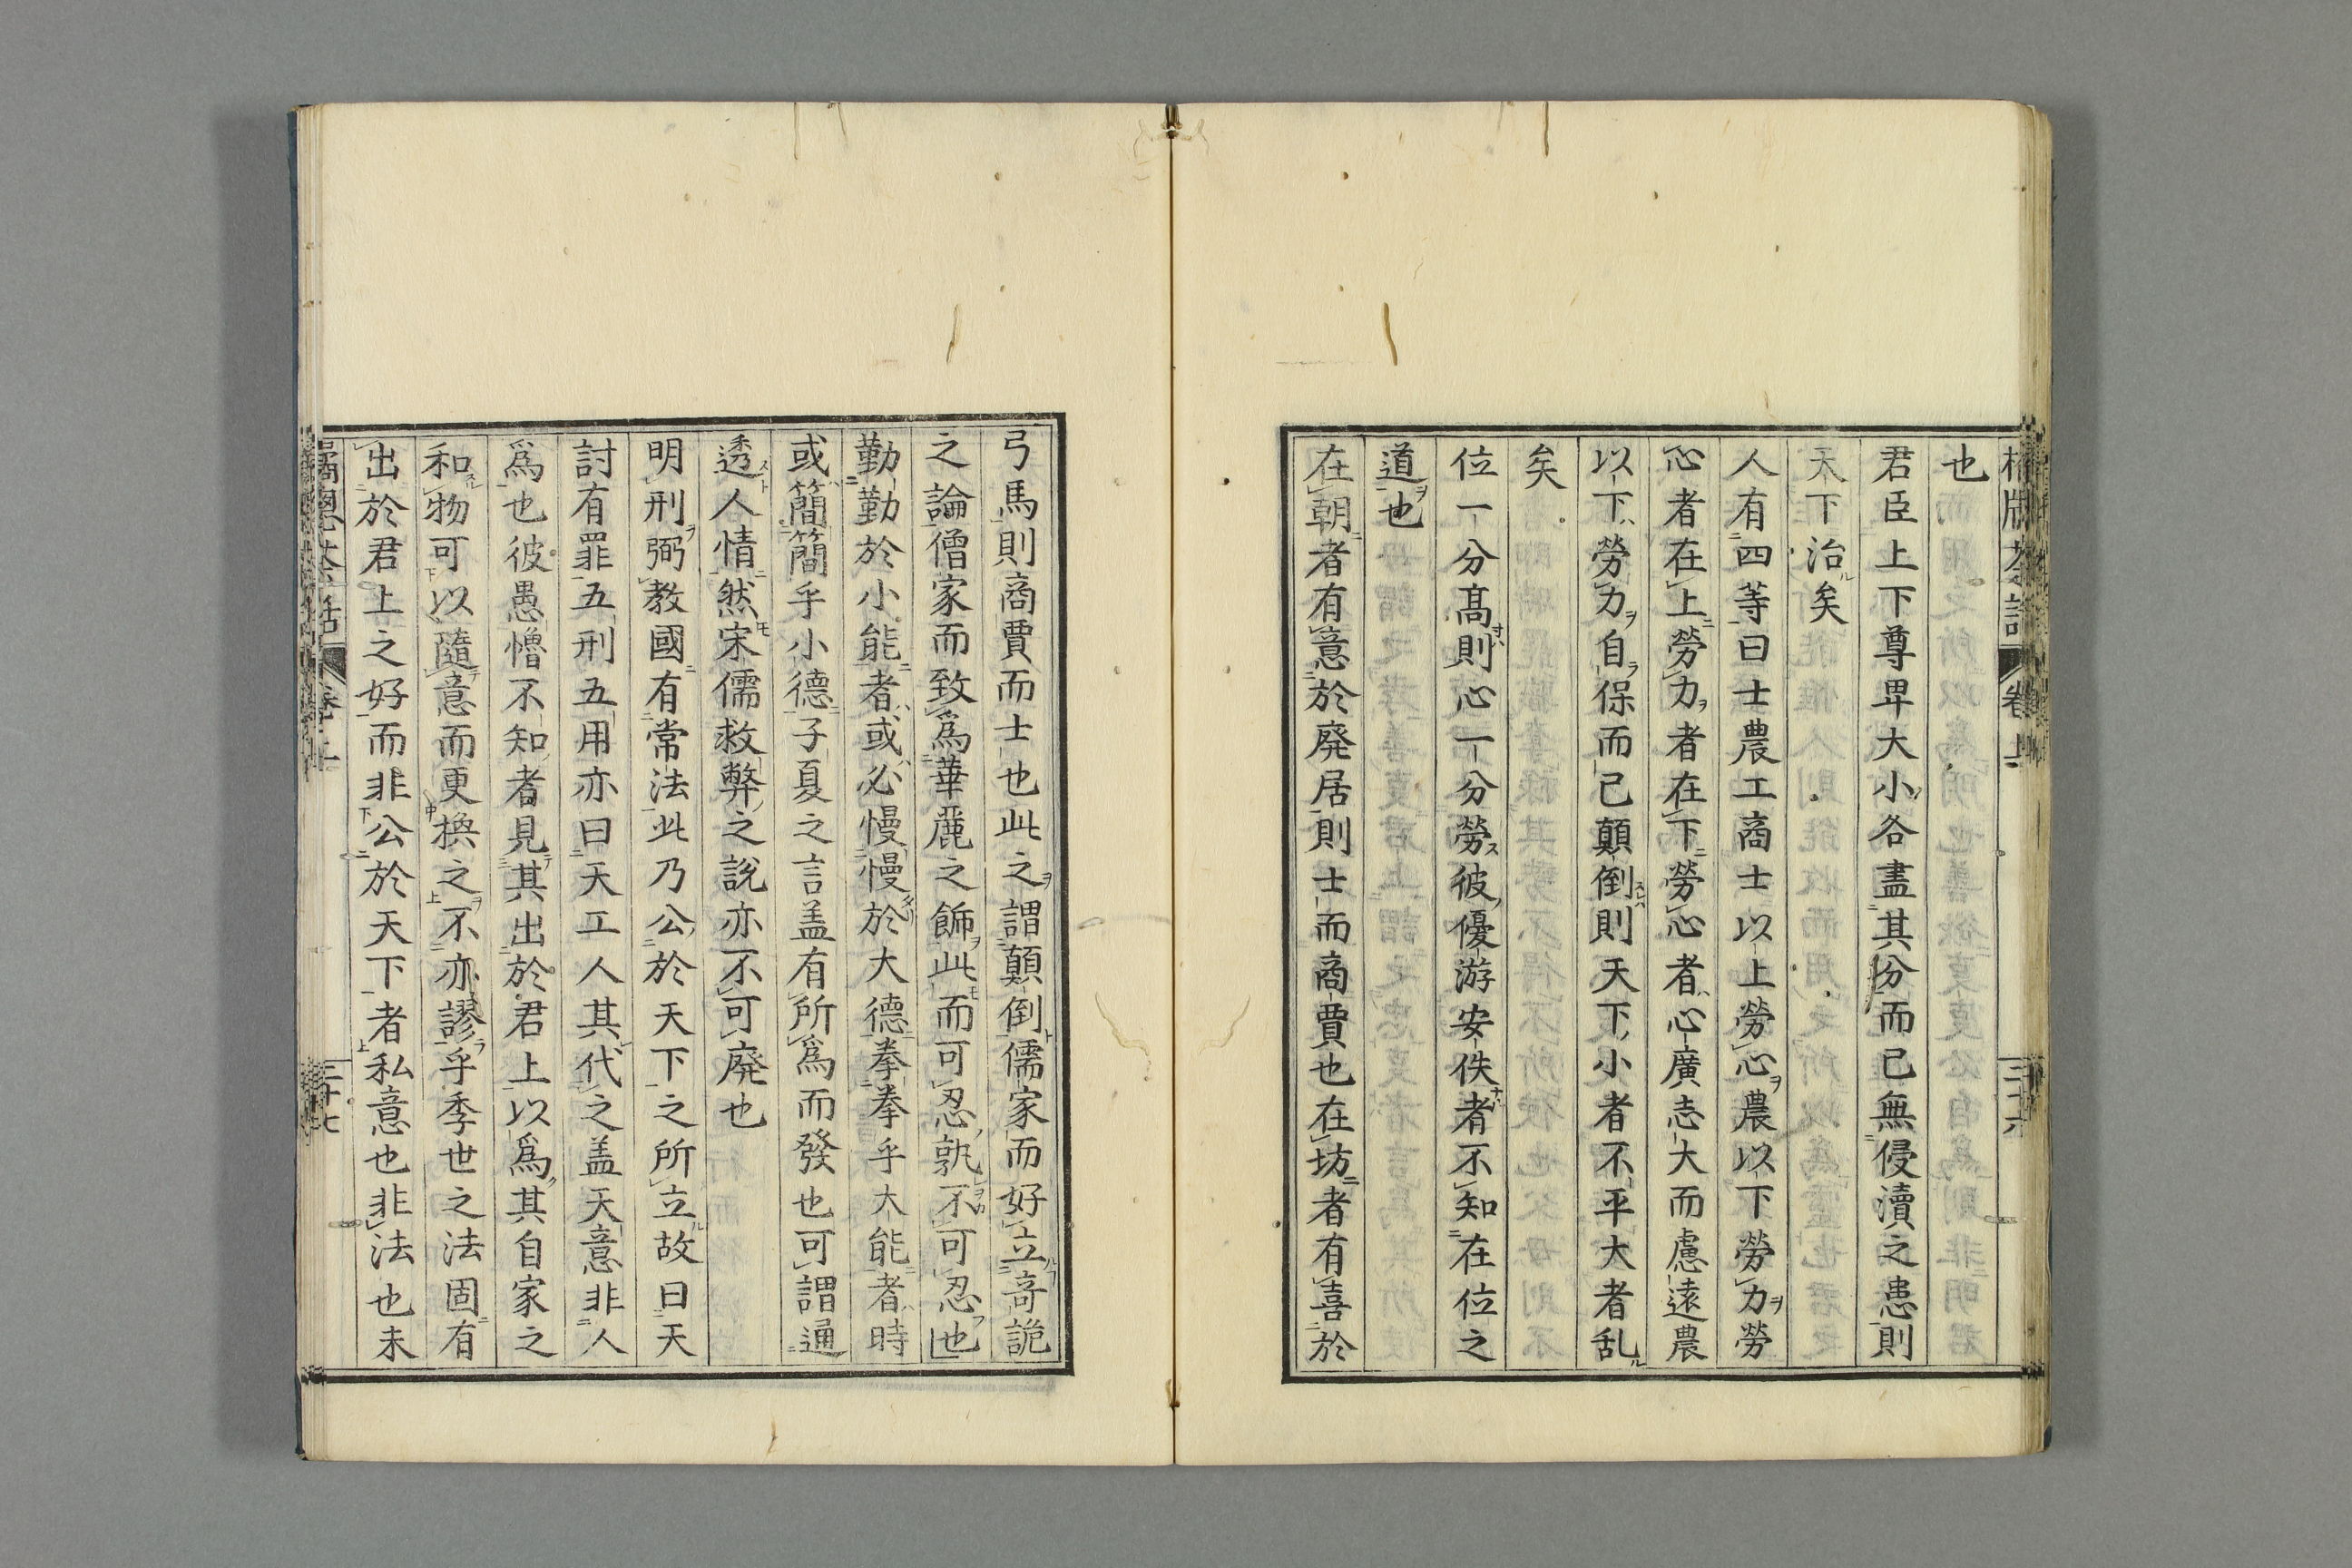 也
君臣上下尊卑大小各盡其分而已無侵瀆之患則
天下治矣
人有四等曰士農工商士以上勞心農以下勞力勞
心者在上勞力者在下勞心者心廣志大而慮遠農
以下勞力自保而已顛倒則天下小者不平大者乱
矣
位一分高則心一分勞彼優游安佚者不知在位之
道也
在朝者有意於廃居則士而商賈也在坊者有喜於
弓馬則商賈而士也此之謂顛倒儒家而好立奇詭
之論僧家而致為華麗之飾此而可忍孰不可忍也
勤勤於小能者或必慢慢於大德拳拳乎大能者時
或簡簡乎小德子夏之言盖有所為而發也可謂通
透人情然宋儒救弊之說亦不可廃也
明刑弼教國有常法此乃公於天下之所立故曰天
討有罪五刑五用亦曰天工人其代之盖天意非人
為也彼愚憎不知者見其出於君上以為其自家之
和物可以隨意而更換之不亦謬乎季世之法固有
出於君上之好而非公於天下者私意也非法也未
卷上
三十七